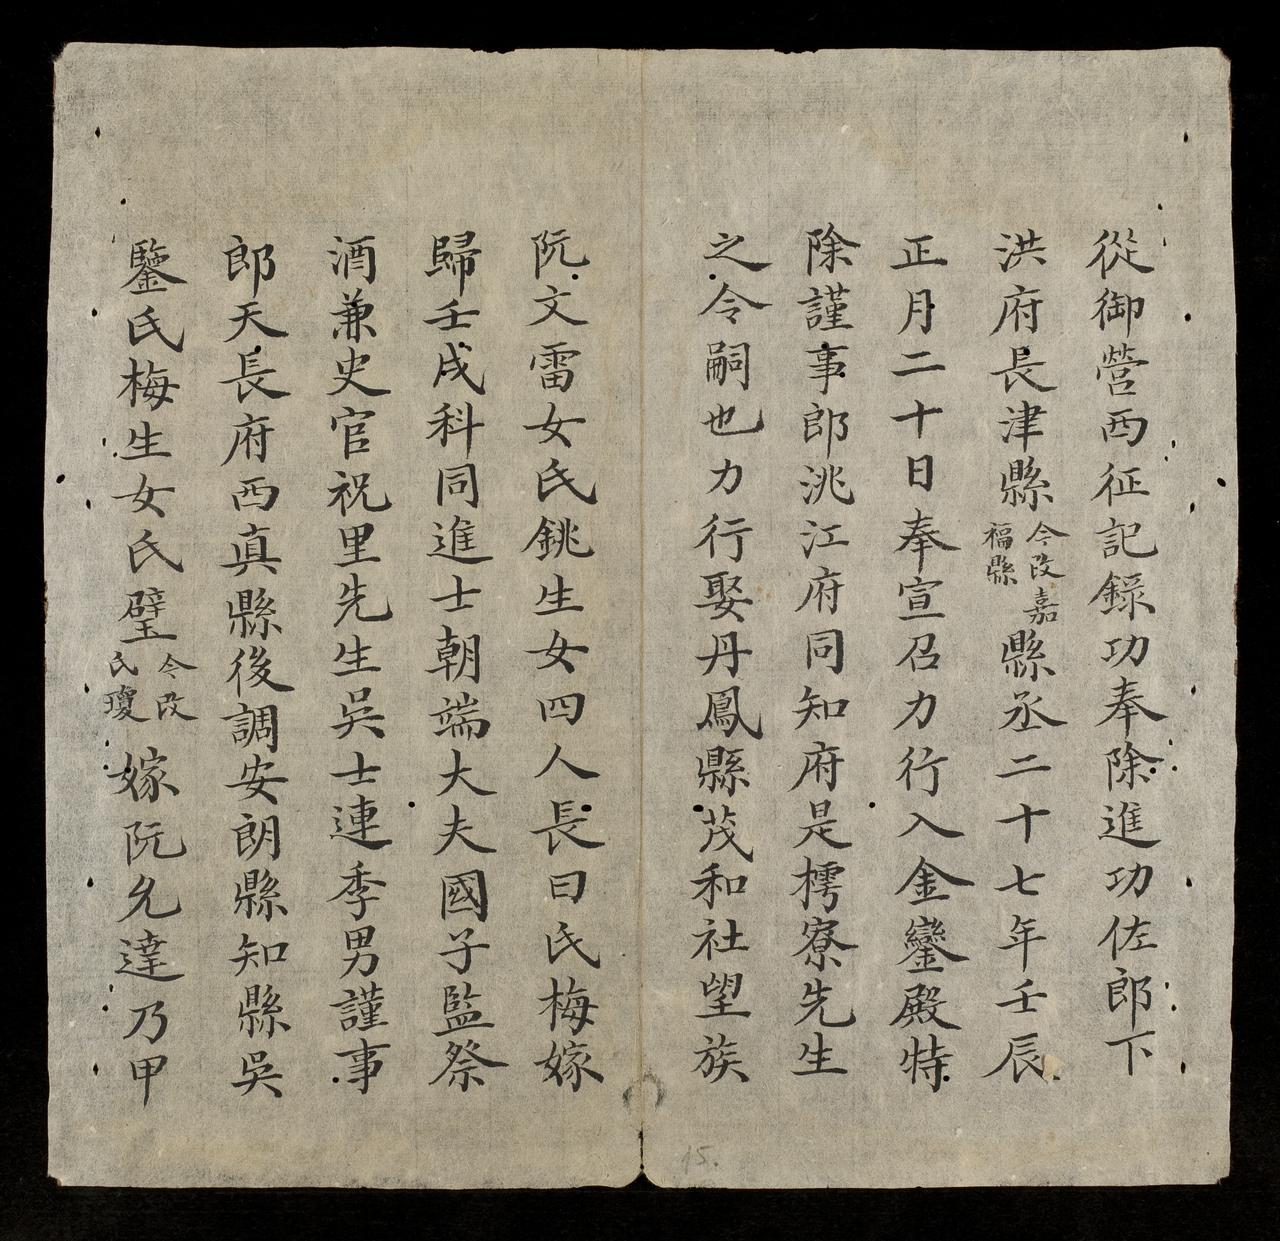 從御營西征記錄功奉除進功佐郎下
洪府長津縣今改嘉福縣縣丞二十七年壬辰
正月二十日奉宣召力行入金鑾殿特
除謹事郎洮江府同知府是樗寮先生
之令嗣也力行娶丹鳳縣茂和社望族
阮文雷女氏銚生女四人長曰氏梅嫁
歸壬戌科同進士朝端大夫國子監祭
酒兼史官祝里先生吳士連季男謹事
郎天長府西真縣後調安朗縣知縣吳
鑒氏梅生女氏璧今改氏瓊嫁阮允達乃甲
15.